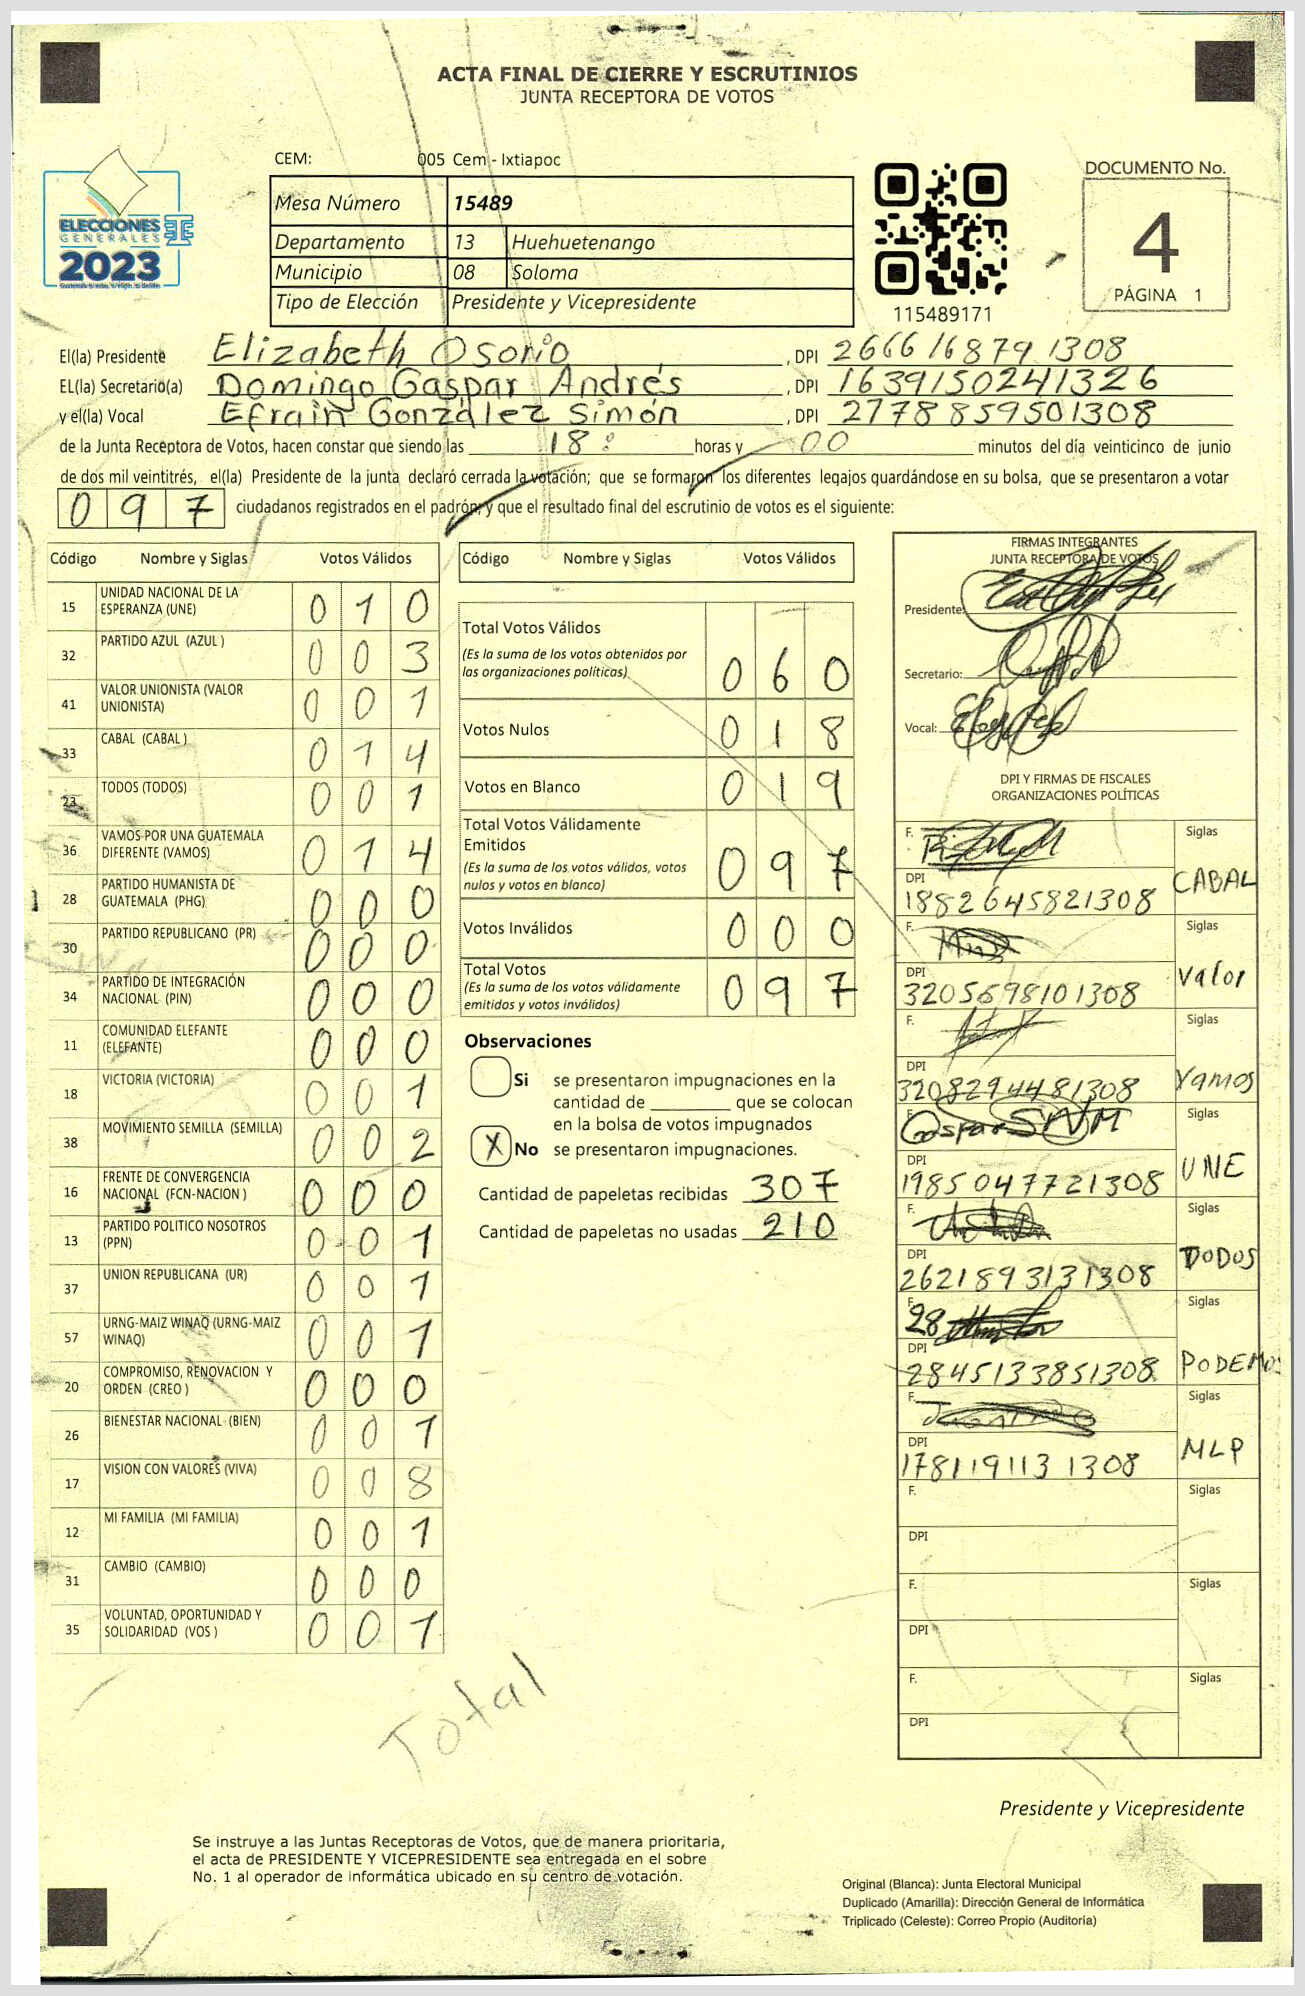 ACTA FINAL DE CIERRE Y ESCRUTINIOS
JUNTA RECEPTORA DE VOTOS
CEM: 005 Cem - Ixtiapoc
ELECCIONES
GENERALES
2023
Mesa Número 15489
Departamento 13 Huehuetenango
Municipio 08 Soloma
Tipo de Elección Presidente y Vicepresidente
115489171
DOCUMENTO No.
4
PÁGINA 1
El(la) Presidente Elizabeth Osorio, DPI 2666168791308
EL(la) Secretario(a) Domingo Gaspar Andrés, DPI 1639150241326
y el(la) Vocal Efraín González Simón, DPI 2778859501308
de la Junta Receptora de Votos, hacen constar que siendo las 18: horas y 00 minutos del día veinticinco de junio
de dos mil veintitrés, el(la) Presidente de la junta declaró cerrada la votación; que se formaron los diferentes legajos guardándose en su bolsa, que se presentaron a votar
097 ciudadanos registrados en el padrón; y que el resultado final del escrutinio de votos es el siguiente:
Código Nombre y Siglas Votos Válidos
15 UNIDAD NACIONAL DE LA ESPERANZA (UNE) 010
32 PARTIDO AZUL (AZUL ) 003
41 VALOR UNIONISTA (VALOR UNIONISTA) 001
33 CABAL (CABAL ) 014
23 TODOS (TODOS) 001
36 VAMOS POR UNA GUATEMALA DIFERENTE (VAMOS) 014
28 PARTIDO HUMANISTA DE GUATEMALA (PHG) 000
30 PARTIDO REPUBLICANO (PR) 000
34 PARTIDO DE INTEGRACIÓN NACIONAL (PIN) 000
11 COMUNIDAD ELEFANTE (ELEFANTE) 000
18 VICTORIA (VICTORIA) 001
38 MOVIMIENTO SEMILLA (SEMILLA) 002
16 FRENTE DE CONVERGENCIA NACIONAL (FCN-NACION ) 000
13 PARTIDO POLITICO NOSOTROS (PPN) 001
37 UNION REPUBLICANA (UR) 001
57 URNG-MAIZ WINAQ (URNG-MAIZ WINAQ) 001
20 COMPROMISO, RENOVACION Y ORDEN (CREO ) 000
26 BIENESTAR NACIONAL (BIEN) 001
17 VISION CON VALORES (VIVA) 008
12 MI FAMILIA (MI FAMILIA) 001
31 CAMBIO (CAMBIO) 000
35 VOLUNTAD, OPORTUNIDAD Y SOLIDARIDAD (VOS ) 001
Total
Código Nombre y Siglas Votos Válidos
Total Votos Válidos
(Es la suma de los votos obtenidos por
las organizaciones políticas) 060
Votos Nulos 018
Votos en Blanco 019
Total Votos Válidamente
Emitidos
(Es la suma de los votos válidos, votos
nulos y votos en blanco) 097
Votos Inválidos 000
Total Votos
(Es la suma de los votos válidamente
emitidos y votos inválidos) 097
Observaciones
Si se presentaron impugnaciones en la
cantidad de ________ que se colocan
en la bolsa de votos impugnados
X No se presentaron impugnaciones.
Cantidad de papeletas recibidas 307
Cantidad de papeletas no usadas 210
FIRMAS INTEGRANTES
JUNTA RECEPTORA DE VOTOS
Presidente:
Secretario:
Vocal:
DPI Y FIRMAS DE FISCALES
ORGANIZACIONES POLÍTICAS
F. Siglas
DPI 1882645821308 CABAL
F. Siglas
DPI 3205698101308 Valor
F. Siglas
DPI 3208294481308 Vamos
F. Siglas
DPI 1985047721308 UNE
F. Siglas
DPI 2621893131308 TODOS
F. 28 Siglas
DPI 2845133851308 PODEMOS
F. Siglas
DPI 1781191131308 MLP
F. Siglas
DPI
F. Siglas
DPI
F. Siglas
DPI
Presidente y Vicepresidente
Se instruye a las Juntas Receptoras de Votos, que de manera prioritaria,
el acta de PRESIDENTE Y VICEPRESIDENTE sea entregada en el sobre
No. 1 al operador de informática ubicado en su centro de votación.
Original (Blanca): Junta Electoral Municipal
Duplicado (Amarilla): Dirección General de Informática
Triplicado (Celeste): Correo Propio (Auditoría)